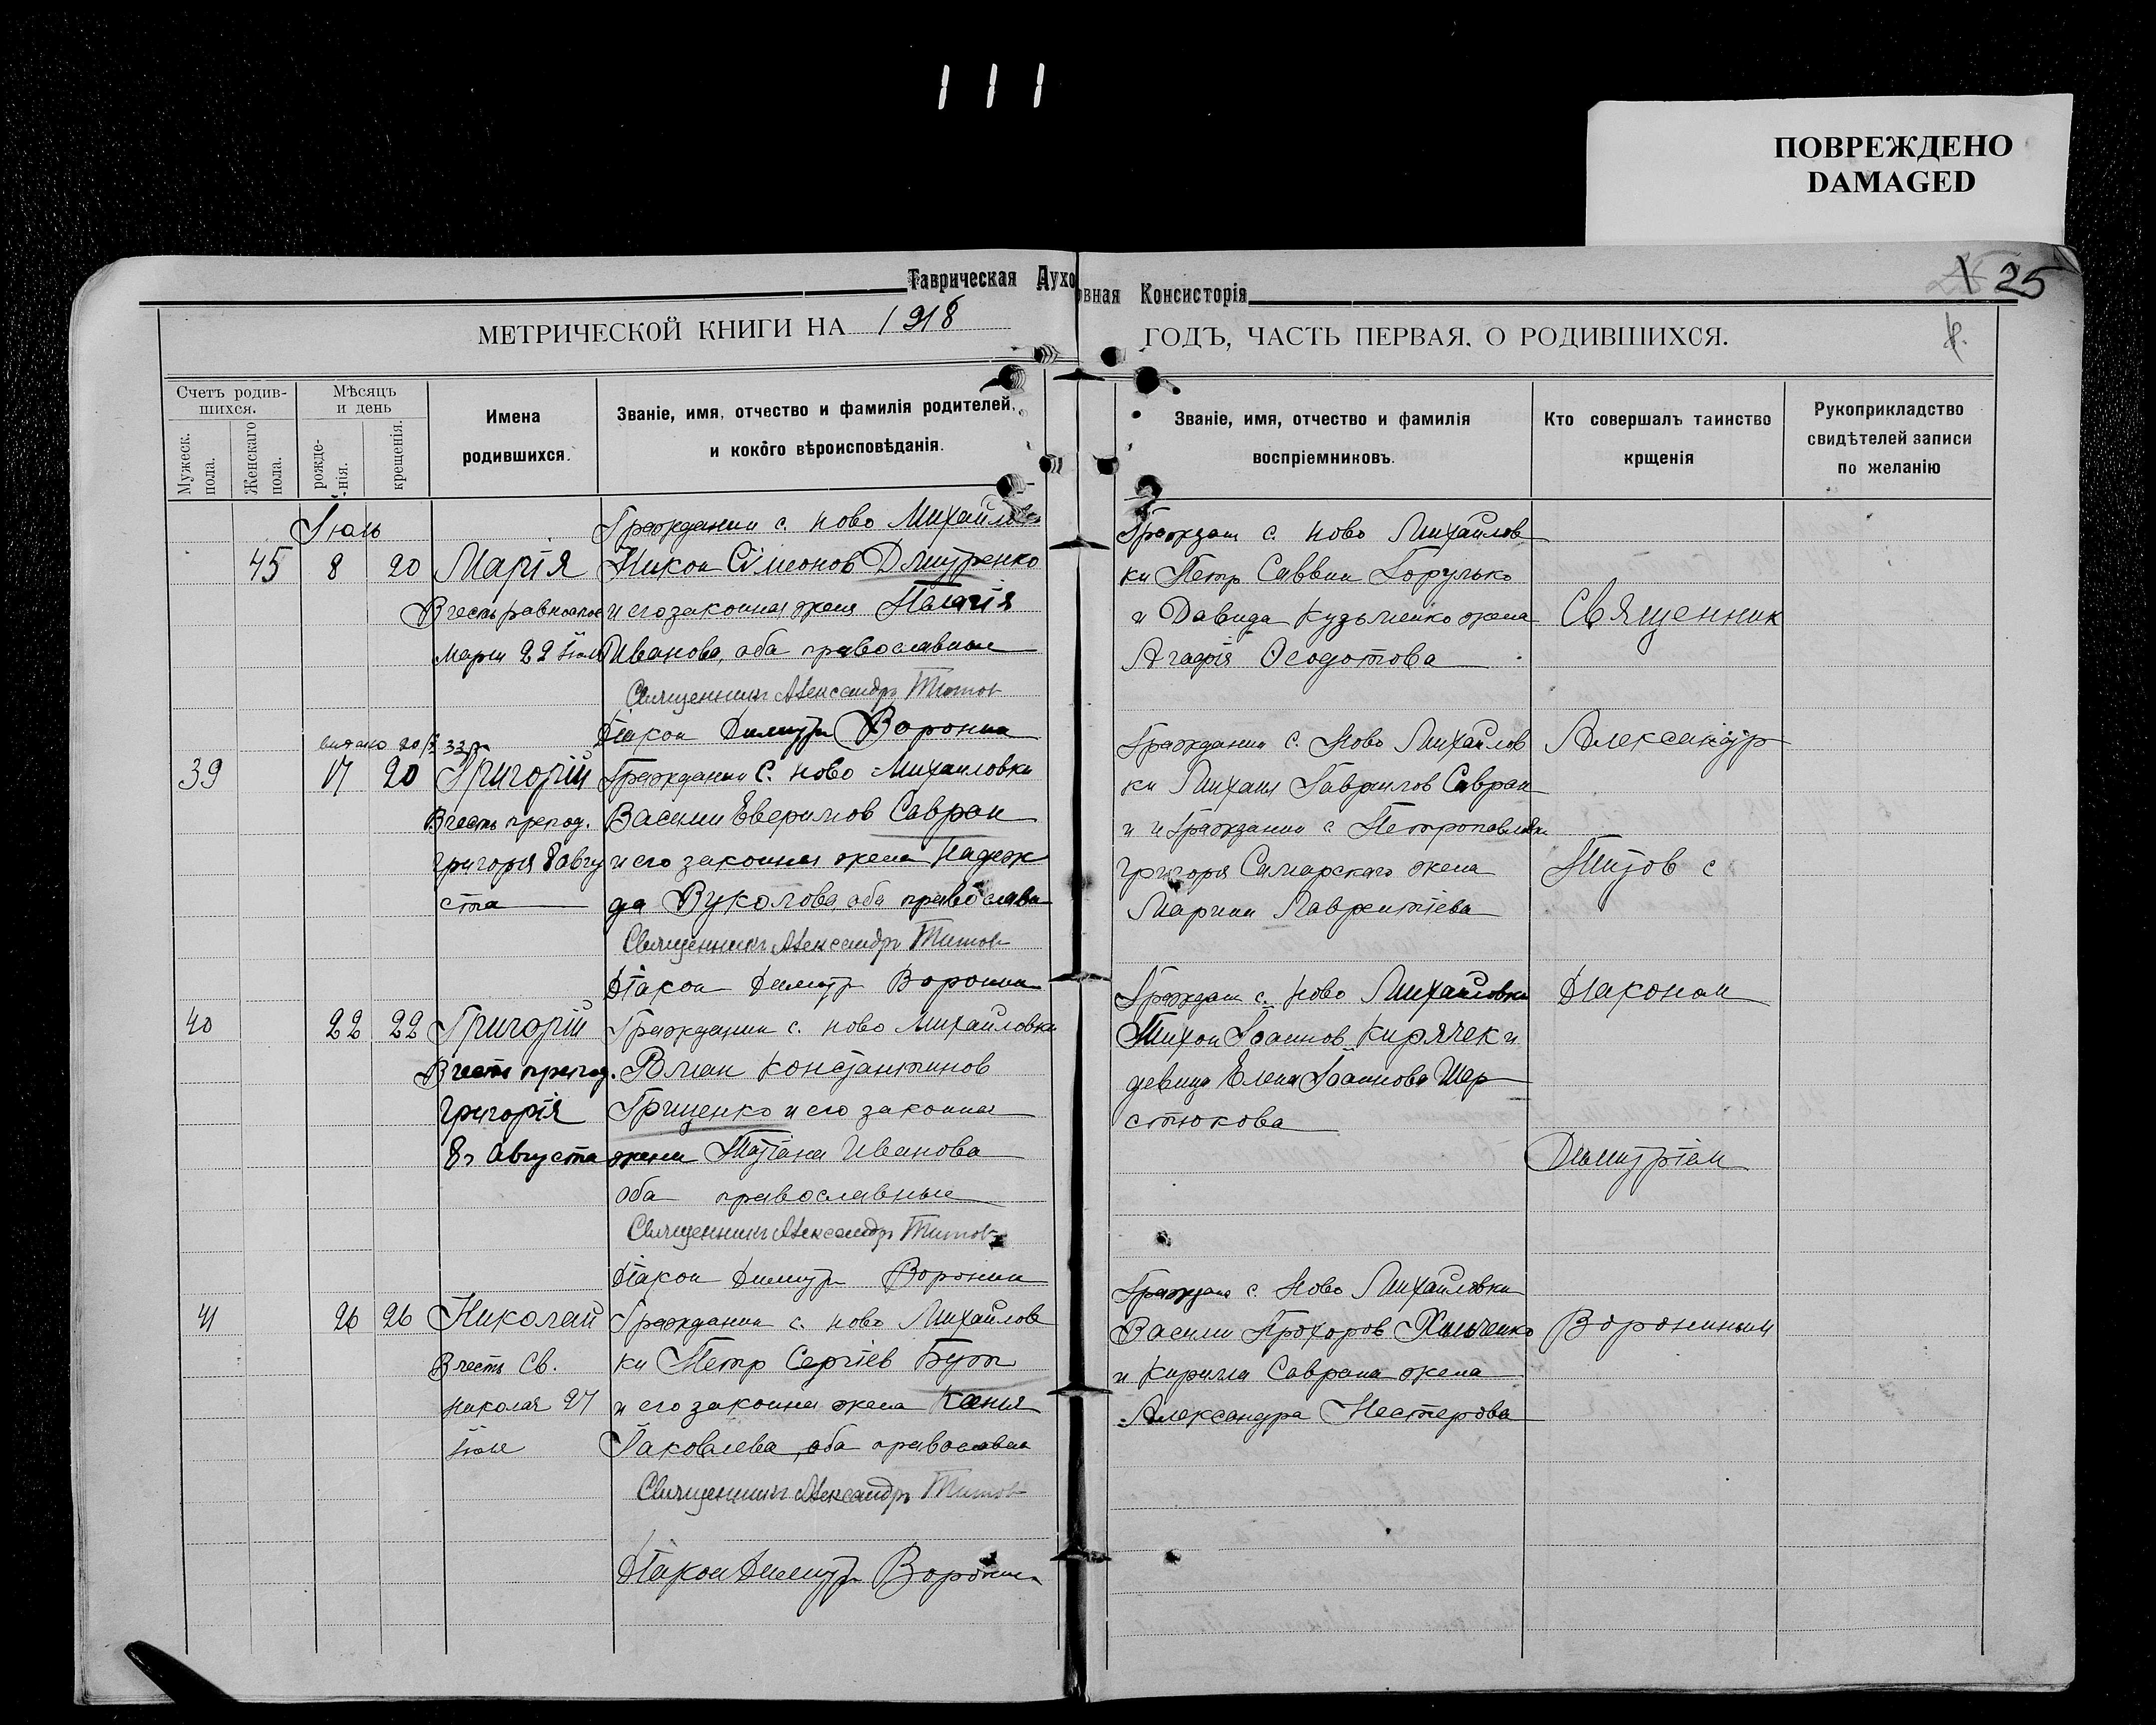 111
ПОВРЕЖДЕНО
DAMAGED
Таврическая Духовная Консисторія
25
МЕТРИЧЕСКОЙ КНИГИ НА 1918 ГОДЪ, ЧАСТЬ ПЕРВАЯ, О РОДИВШИХСЯ.
Счетъ родив-
шихся.
Мужеск.
пола.
Женскаго
пола.
Мѣсяцъ
и день
рожде-
нія.
крещенія.
Имена
родившихся.
Званіе, имя, отчество и фамилія родителей,
и кокого вѣроисповѣданія.
Званіе, имя, отчество и фамилія
воспріемниковъ.
Кто совершалъ таинство
крщенія
Рукоприкладство
свидѣтелей записи
по желанію
Іюль
45 8 20 Марія
В честь равноапос
Марии 22 Іюля
Гражданин с. Ново Михайловки
Никон Сімеонов Дмитренко
и его законная жена Пелагія
Иванова, оба православные
Священникъ Александръ Титовъ
Діакон Димитр Воронин
Граждан с. Ново Михайлов
ки Петр Саввин Горулько
и Давида Кузьменко жена
Агафія Ѳеодотова
39 17 20 Григорій
В честь препод.
Григорія 8 авгу
ста
Гражданин с. Ново Михаиловки
Василий Еверимов Савран
и его законная жена Надеж
да Вуколова, оба православн
Священникъ Александръ Титовъ
Діакон Димитр Воронин
Гражданин с. Ново Михайлов
ки Михаил Гаврилов Савран
и и Гражданин с Петропавловки
Григорія Самарскаго жена
Марина Лаврентіева
40 22 22 Григорій
В честь препод.
Григорія
8го Августа
Гражданин с. Ново Михайловки
Роман Константинов
Гриценко и его законная
жена Татіана Иванова
оба православные
Священникъ Александръ Титовъ
Діакон Димитр Воронин
Граждан с. Ново Михайловки
Тихон Іоаннов Кирячек и
девица Елена Іоаннова Шер
стюкова
41 26 26 Николай
В честь Св.
Николая 27
Іюля
Гражданин с. Ново Михайлов
ки Петр Сергіев Бут
и его законная жена Ксенія
Іаковлева, оба православн
Священникъ Александръ Титовъ
Діакон Димитр Воронин
Граждан с. Ново Михайловки
Василий Прохоров Хильченко
и Кирилла Саврана жена
Александра Нестерова
Священник
Александр
Титов с
Діаконом
Димитріем
Ворониным